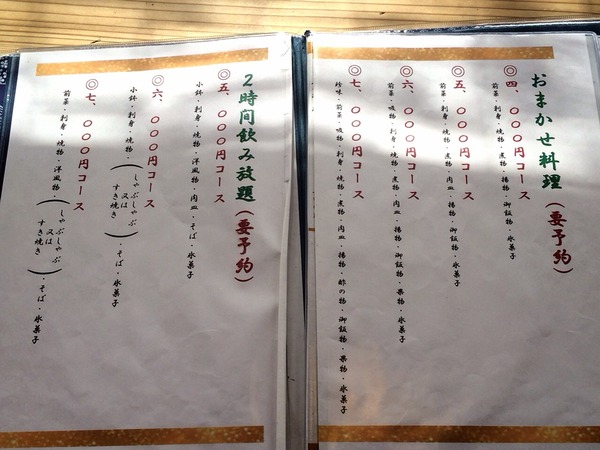 おまかせ料理（要予約）
◎四、〇〇〇円コース
前菜・刺身・焼物・揚物・御飯物・氷菓子
◎五、〇〇〇円コース
前菜・刺身・焼物・煮物・肉皿・揚物・御飯物・氷菓子
◎六、〇〇〇円コース
前菜・吸物・刺身・焼物・煮物・肉皿・揚物・御飯物・果物・氷菓子
◎七、〇〇〇円コース
珍味・前菜・吸物・刺身・焼物・煮物・肉皿・揚物・酢の物・御飯物・果物・氷菓子
2時間飲み放題（要予約）
◎五、〇〇〇円コース
小鉢・刺身・焼物・洋風物・肉皿・そば・氷菓子
◎六、〇〇〇円コース
小鉢・刺身・焼物・（しゃぶしゃぶ又はすき焼き）・そば・氷菓子
◎七、〇〇〇円コース
前菜・刺身・焼物・洋風物・（しゃぶしゃぶ又はすき焼き）・そば・氷菓子